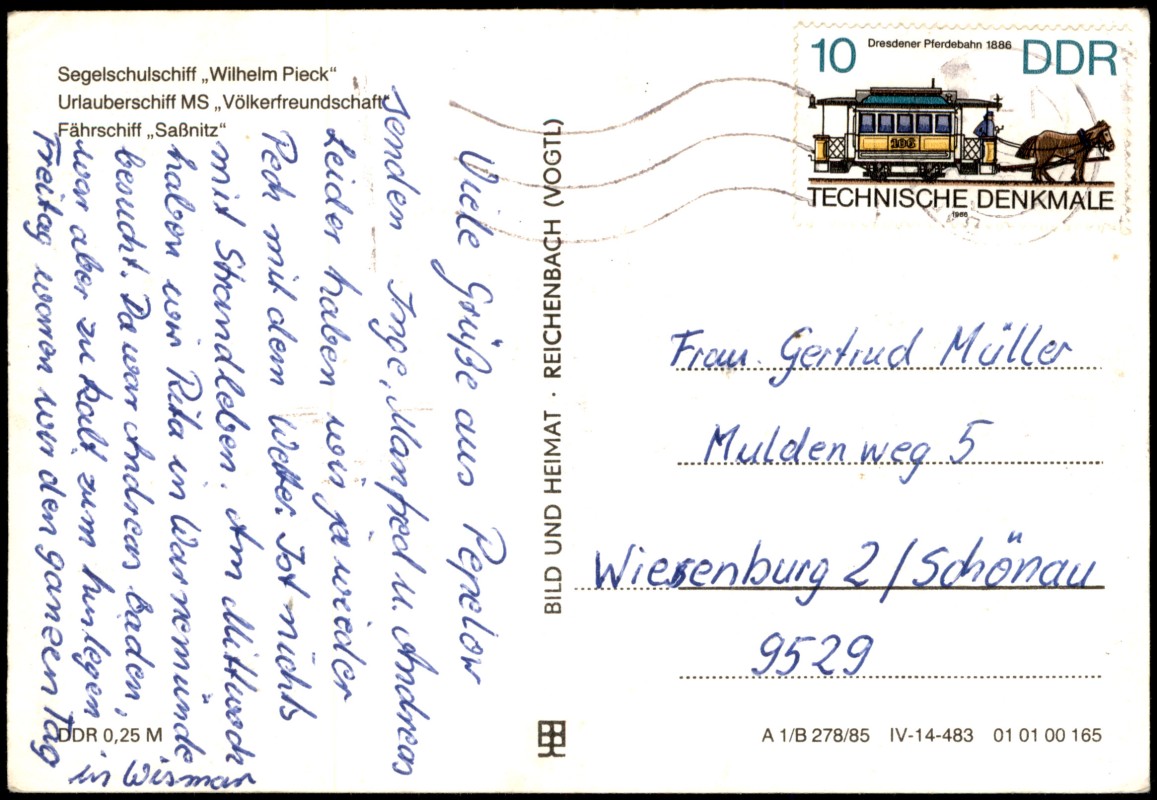 Segelschulschiff „Wilhelm Pieck“
Urlauberschiff MS „Völkerfreundschaft“
Fährschiff „Saßnitz“
Viele Grüße aus Pepelow
senden Inge, Manfred u. Andreas
Leider haben wir ja wieder
Pech mit dem Wetter. Ist nichts
mit Strandleben. Am Mittwoch
haben wir Rita in Warnemünde
besucht. Da war Andreas baden,
war aber zu kalt zum hinlegen
Freitag waren wir den ganzen Tag
in Wismar
DDR 0,25 M
BILD UND HEIMAT · REICHENBACH (VOGTL)
10 Dresdener Pferdebahn 1886 DDR
106
TECHNISCHE DENKMALE
1986
Frau Gertrud Müller
Muldenweg 5
Wiesenburg 2 / Schönau
9529
A 1/B 278/85 IV-14-483 01 01 00 165